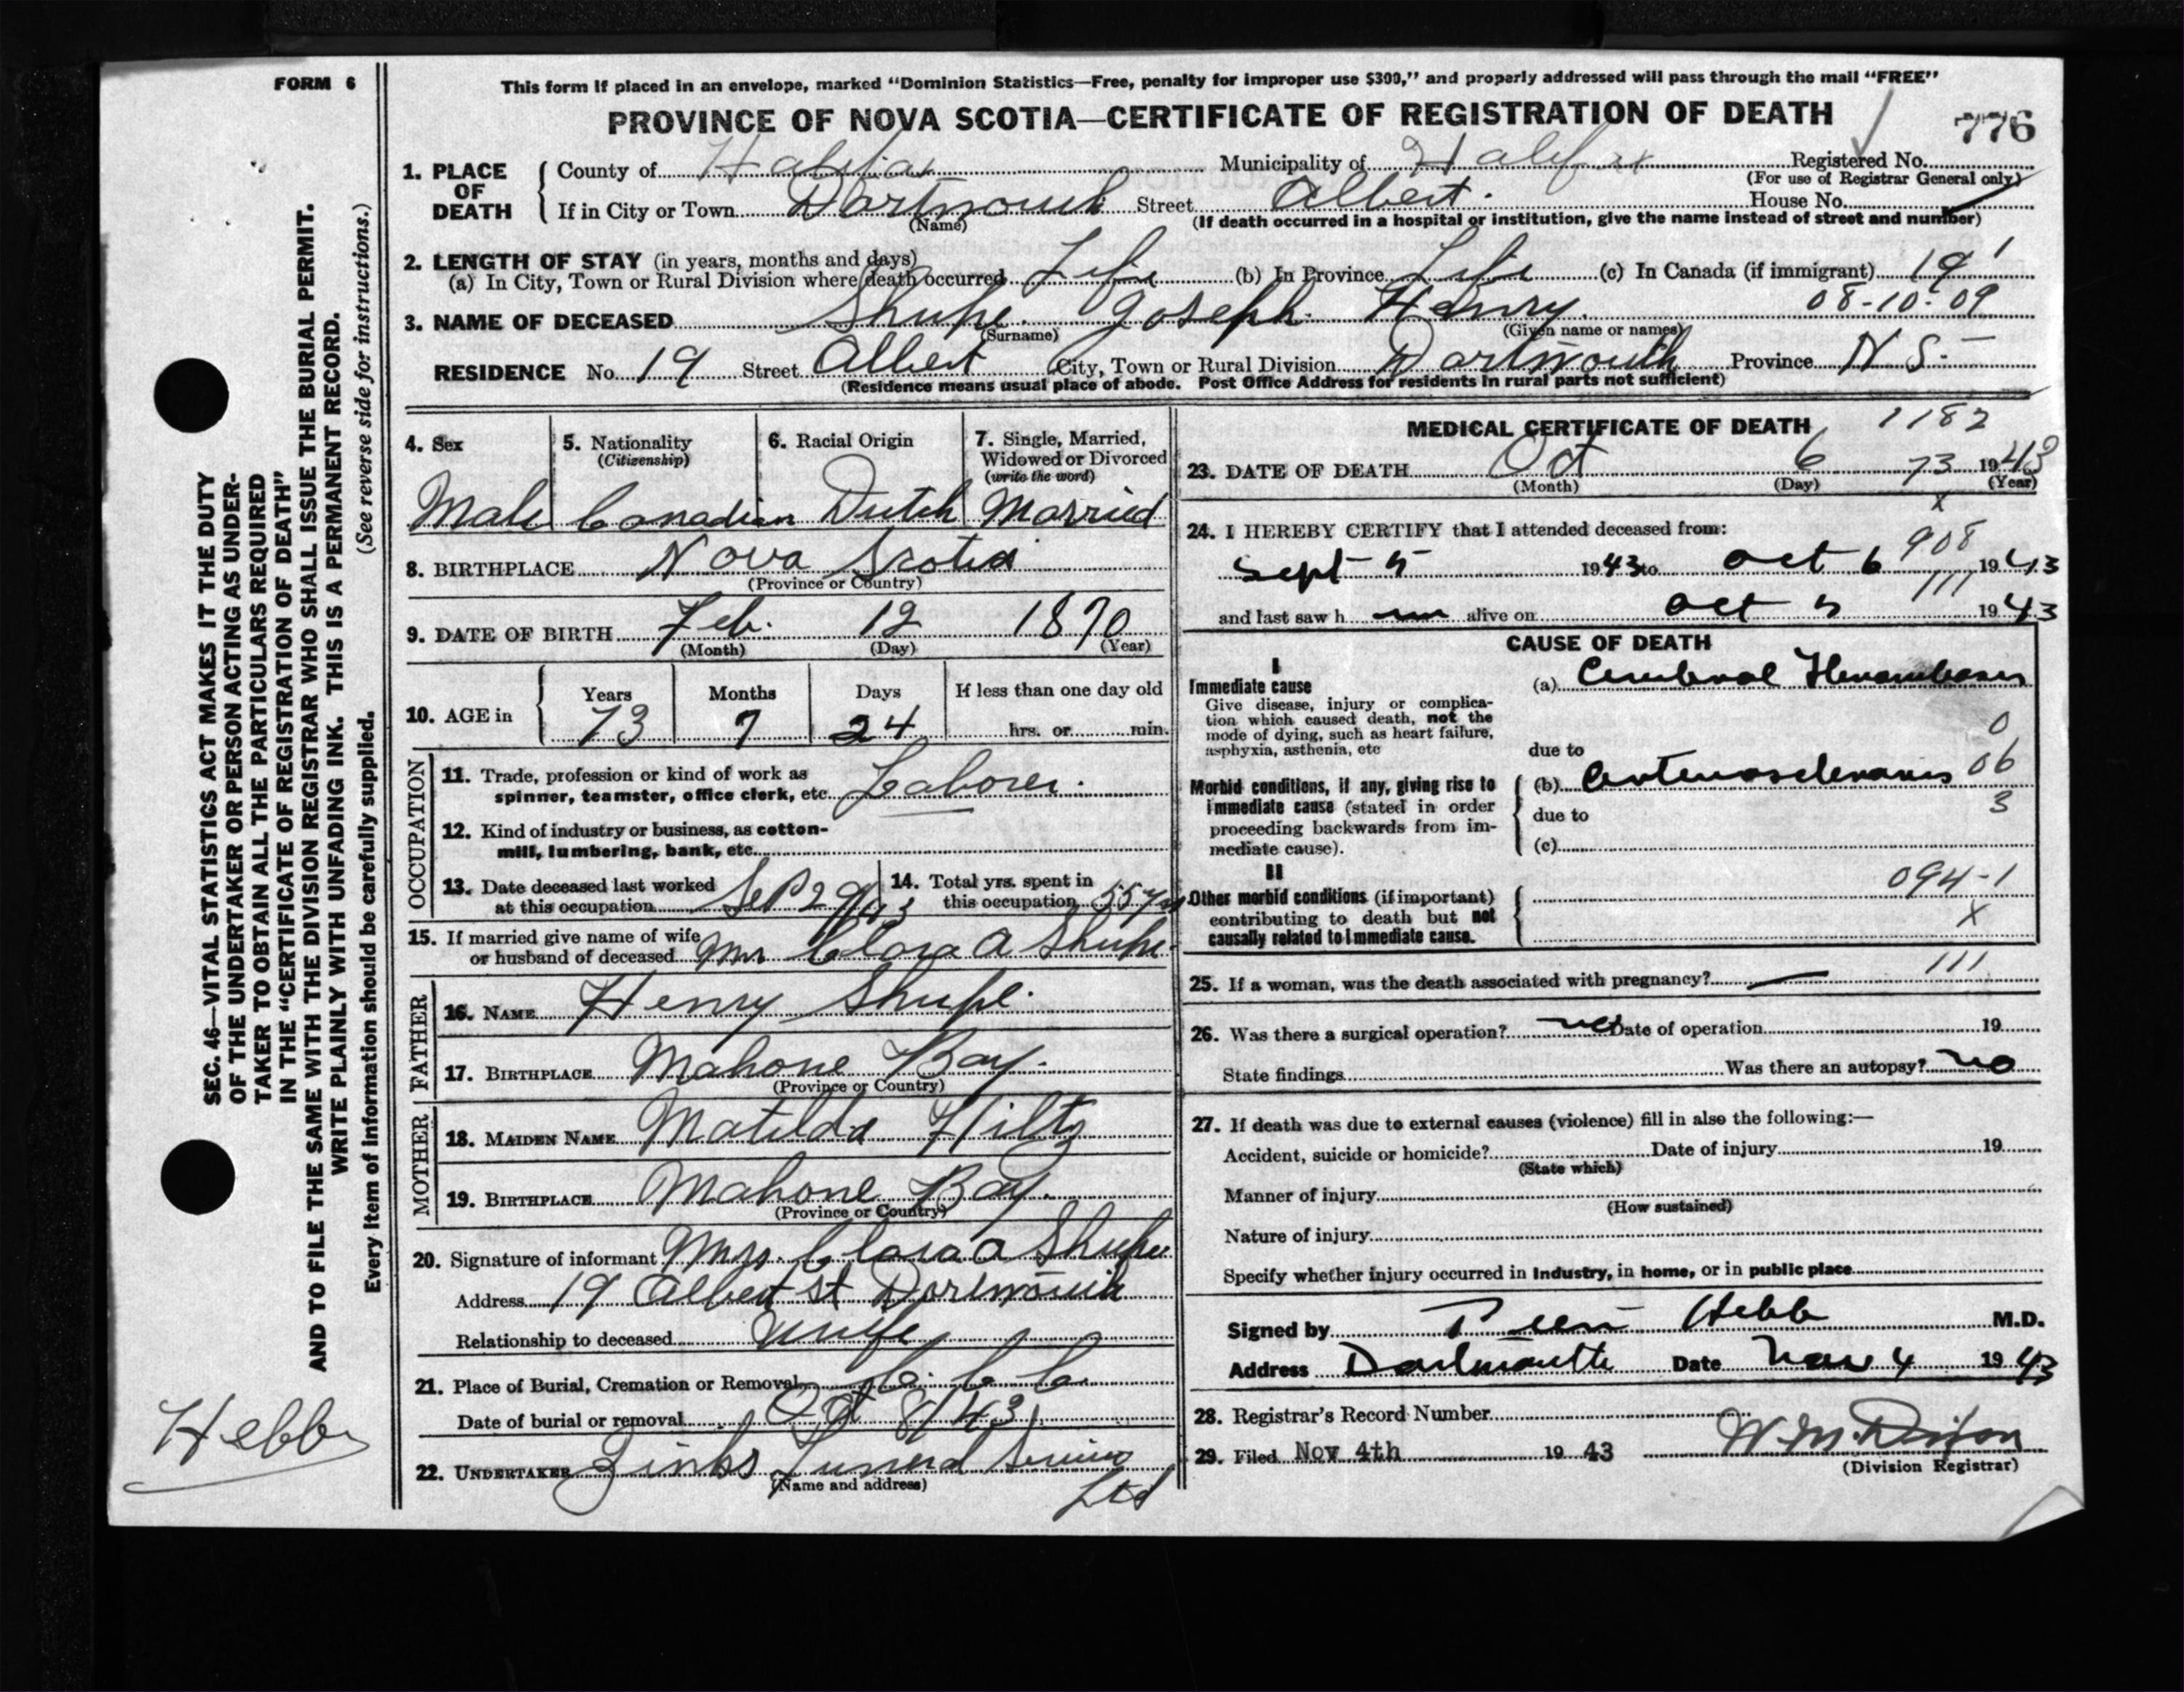 FORM 6
This form if placed in an envelope, marked "Dominion Statistics—Free, penalty for improper use $300," and properly addressed will pass through the mail "FREE"
PROVINCE OF NOVA SCOTIA—CERTIFICATE OF REGISTRATION OF DEATH
776
1. PLACE OF DEATH
County of Halifax Municipality of Halifax Registered No.
(For use of Registrar General only)
If in City or Town Dartmouth Street Albert. House No.
(Name) (If death occurred in a hospital or institution, give the name instead of street and number)
2. LENGTH OF STAY (in years, months and days)
(a) In City, Town or Rural Division where death occurred Life (b) In Province Life (c) In Canada (if immigrant) 19 1
08-10-09
3. NAME OF DECEASED Shupe. Joseph Henry.
(Surname) (Given name or names)
RESIDENCE No. 19 Street Albert City, Town or Rural Division Dartmouth Province N S.
(Residence means usual place of abode. Post Office Address for residents in rural parts not sufficient)
SEC. 46—VITAL STATISTICS ACT MAKES IT THE DUTY
OF THE UNDERTAKER OR PERSON ACTING AS UNDER-
TAKER TO OBTAIN ALL THE PARTICULARS REQUIRED
IN THE "CERTIFICATE OF REGISTRATION OF DEATH"
AND TO FILE THE SAME WITH THE DIVISION REGISTRAR WHO SHALL ISSUE THE BURIAL PERMIT.
WRITE PLAINLY WITH UNFADING INK. THIS IS A PERMANENT RECORD.
Every item of information should be carefully supplied. (See reverse side for instructions.)
Hebb
4. Sex
Male
5. Nationality
(Citizenship)
Canadian
6. Racial Origin
Dutch
7. Single, Married,
Widowed or Divorced
(write the word)
Married
8. BIRTHPLACE Nova Scotia
(Province or Country)
9. DATE OF BIRTH Feb. 12 1870
(Month) (Day) (Year)
10. AGE in
Years Months Days If less than one day old
73 7 24 hrs. or min.
OCCUPATION
11. Trade, profession or kind of work as
spinner, teamster, office clerk, etc. Laborer.
12. Kind of industry or business, as cotton-
mill, lumbering, bank, etc.
13. Date deceased last worked
at this occupation Sep 29/43
14. Total yrs. spent in
this occupation 55 yrs
15. If married give name of wife
or husband of deceased Mrs Clara A Shupe.
FATHER
16. NAME Henry Shupe.
17. BIRTHPLACE Mahone Bay.
(Province or Country)
MOTHER
18. MAIDEN NAME Matilda Hiltz
19. BIRTHPLACE Mahone Bay.
(Province or Country)
20. Signature of informant Mrs. Clara A Shupe
Address 19 Albert St Dartmouth
Relationship to deceased Wife
21. Place of Burial, Cremation or Removal
Date of burial or removal Oct 8/43
22. UNDERTAKER Zinks Funeral Service
(Name and address) Ltd
MEDICAL CERTIFICATE OF DEATH 1182
23. DATE OF DEATH Oct 6 73 1943
(Month) (Day) (Year)
x
24. I HEREBY CERTIFY that I attended deceased from:
908
Sept 5 1943 to Oct 6 1943
111
and last saw h im alive on Oct 5 1943
CAUSE OF DEATH
I
Immediate cause
Give disease, injury or complica-
tion which caused death, not the
mode of dying, such as heart failure,
asphyxia, asthenia, etc
(a) Cerebral
0
due to
Morbid conditions, if any, giving rise to
immediate cause (stated in order
proceeding backwards from im-
mediate cause).
(b) Arteriosclerosis 06
due to 3
(c)
II
Other morbid conditions (if important)
contributing to death but not
causally related to immediate cause.
094-1
X
111
25. If a woman, was the death associated with pregnancy?
26. Was there a surgical operation? no Date of operation 19
State findings Was there an autopsy? no
27. If death was due to external causes (violence) fill in also the following:—
Accident, suicide or homicide? Date of injury 19
(State which)
Manner of injury
(How sustained)
Nature of injury
Specify whether injury occurred in industry, in home, or in public place
Signed by Hebb M.D.
Address Dartmouth Date Nov 4 1943
28. Registrar's Record Number
29. Filed Nov 4th 1943 W. M. Dixon
(Division Registrar)